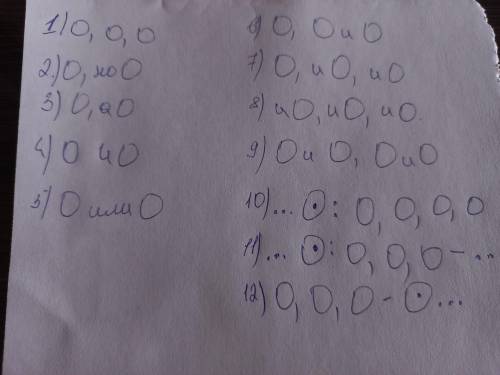 1) О, О, О
2.) О, но О
3) О, а О
4) О и О
5) О или О
6) О, О и О
7) О, и О, и О
8) и О, и О, и О.
9) О и О, О и О
10) ... ⊙: О, О, О, О
11) ... ⊙: О, О, О - ...
12) О, О, О - ⊙...